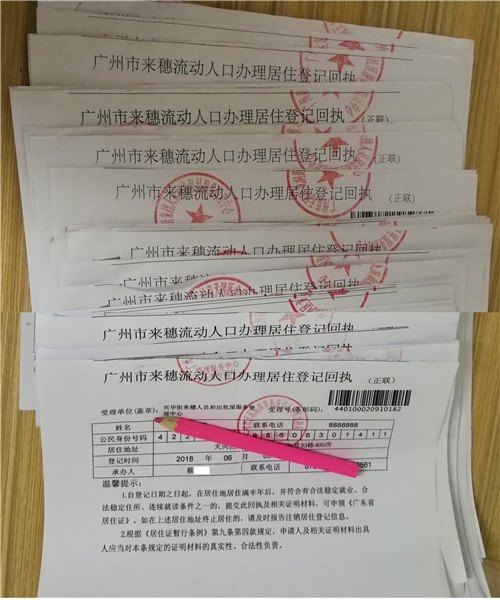 广州市来穗流动人口办理居住登记回执
广州市来穗流动人口办理居住登记回执 (正联)
广州市来穗流动人口办理居住登记回执 (正联)
广州市来穗流动人口办理居住登记回执 (正联)
广州市来穗流动人口办理居住登记回执
广州市来穗流动人口办理居住登记回执
广州市来穗流动人口办理居住登记回执
广州市来穗流动人口办理居住登记回执
广州市来穗流动人口办理居住登记回执 (正联)
受理单位(盖章): 兴华街来穗人员和出租屋服务管理中心 受理号(条形码): 440100020910182
姓名 联系电话 8888888
公民身份号码 4 2 2
居住地址 天河区 33栋405房
登记时间 2018 年 06 月
承办人 蔡 联系电话
温馨提示:
1.自登记日期之日起,在居住地居住满半年后,并符合有合法稳定就业、合
法稳定住所、连续就读条件之一的,提交此回执及相关证明材料,可申领《广东省
居住证》。如在上述居住地址终止居住的,请及时报告注销居住登记信息。
2.根据《居住证暂行条例》第九条第四款规定,申请人及相关证明材料出具
人应当对本条规定的证明材料的真实性、合法性负责。